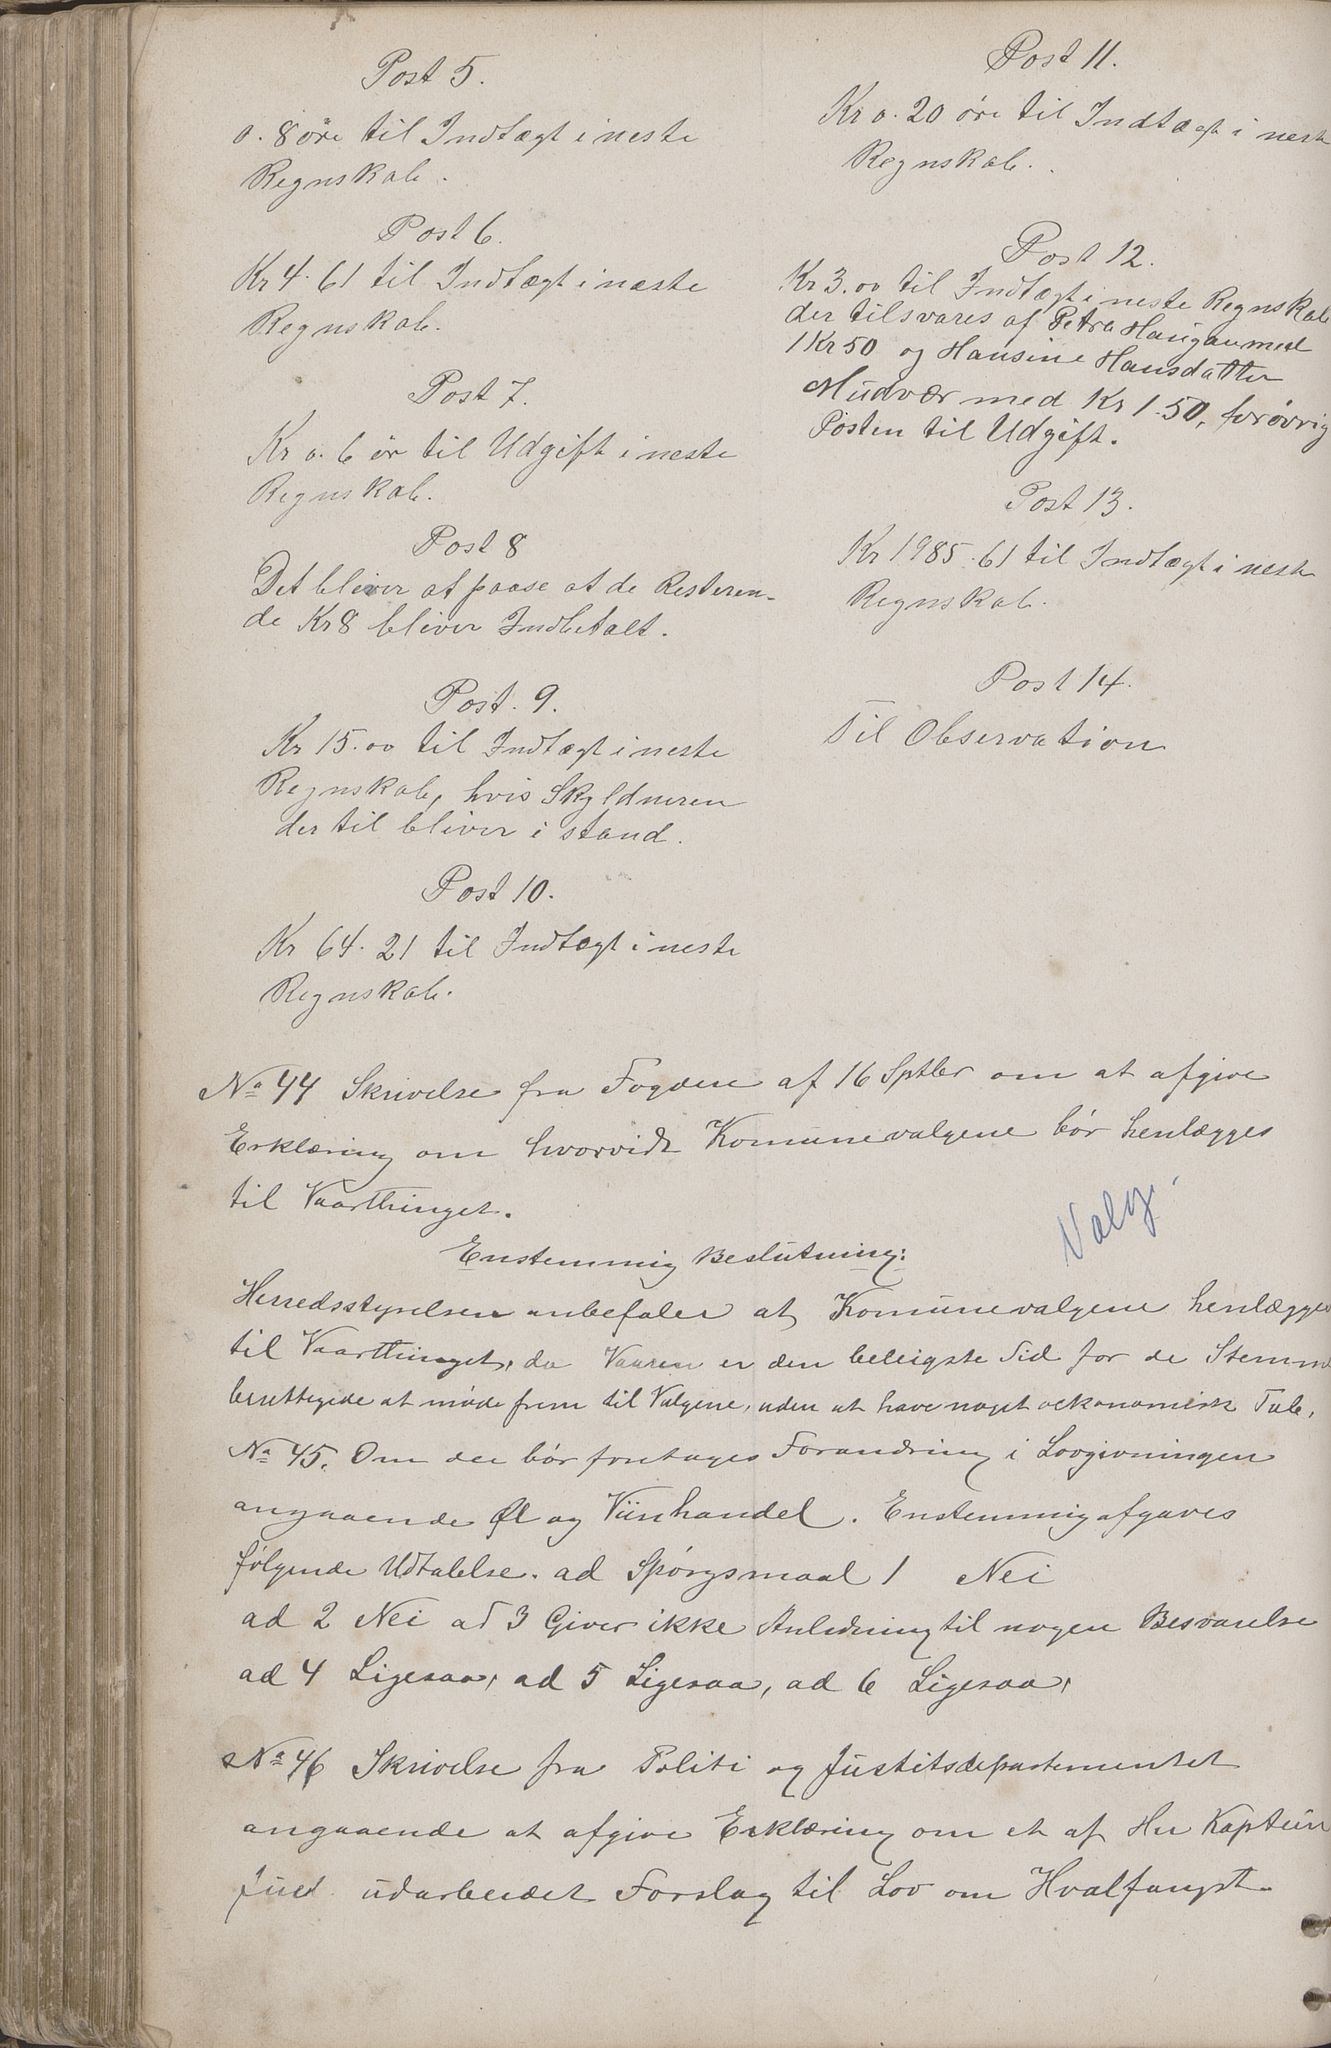 Post 5.
0. 8 øre til Indtægt i neste
Regnskab.
Post 6.
Kr 4. 61 til Indtægt i næste
Regnskab.
Post 7.
Kr 0. 6 ør til Udgift i neste
Regnskab.
Post 8
Det bliver at paase at de Resteren-
de Kr 8 bliver Indbetalt.
Post. 9.
Kr 15.00 til Indtægt i neste
Regnskab, hvis Skyldneren
der til bliver i stand.
Post 10.
Kr 64. 21 til Indtægt i neste
Regnskab.
Post 11.
Kr 0. 20 øre til Indtægt i neste
Regnskab.
Post 12.
Kr 3.00 til Indtægt i neste Regnskab
der tilsvares af Petra Haugan med
1 Kr 50 og Hansine Hansdatter
Mudvær med Kr 1.50, forøvrig
Posten til Udgift.
Post 13.
Kr 1985.61 til Indtægt i neste
Regnskab.
Post 14.
Til Observation
No 44 Skrivelse fra Fogden af 16 Sptbr om at afgive
Erklæring om hvorvidt Komunevalgene bør henlægges
til Vaarthinget.
Valg
Enstemmig Beslutning:
Herredsstyrelsen anbefaler at Komunevalgene henlægges
til Vaarthinget, da Vaaren er den beleigste Tid for de Stemme
berettigede at møde frem til Valgene, uden at have noget oekonomisk Tab.
No 45. Om der bør foretages Forandring i Lovgivningen
angaaende Øl og Viinhandel. Enstemmig afgaves
følgende Udtalelse. ad Spørgsmaal 1 Nei
ad 2 Nei ad 3 Giver ikke Anledning til nogen Besvarelse
ad 4 Ligesaa, ad 5 Ligesaa, ad 6 Ligesaa,
No 46 Skrivelse fra Politi og Justitsdepartementet
angaaende at afgive Erklæring om et af Hr Kaptein
Juel udarbeidet Forslag til Lov om Hvalfangst